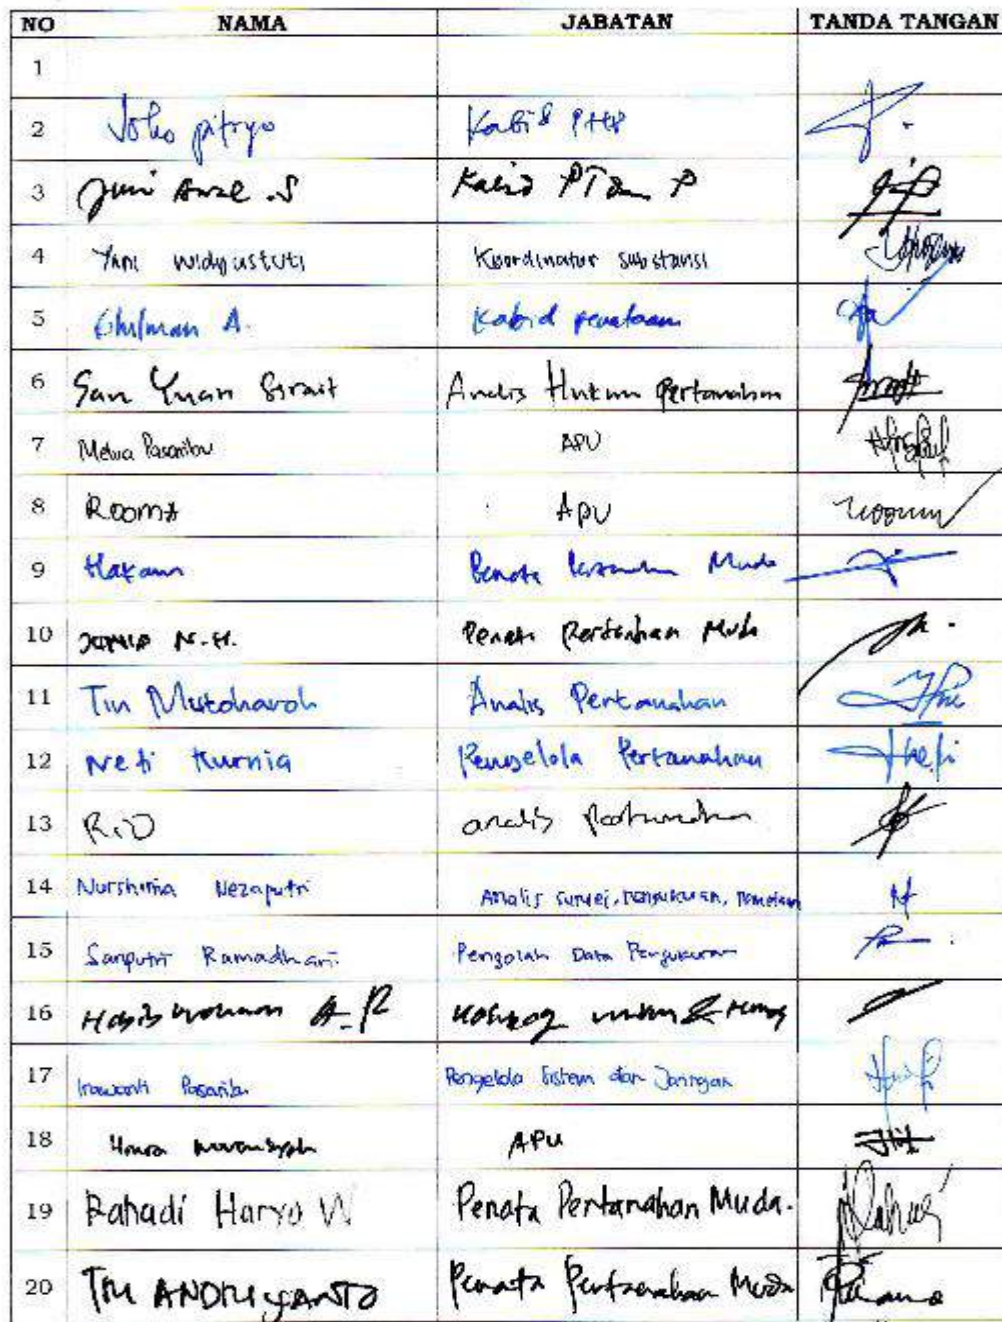 NO NAMA JABATAN TANDA TANGAN
1
2 Joko pitryo Kabid PHP
3 Juni Awal .S Kabid PT P
4 Yani widyastuti Koordinator substansi
5 Ghifman A. Kabid penataan
6 San Yuan Sirait Analis Hukum pertanahan
7 Melwa Pasaribu APU
8 Rooma APU
9 Hakam Penata Pertanahan Muda
10 N.H. Penata Pertanahan Muda
11 Tin Mutoharoh Analis Pertanahan
12 Neti Kurnia Pengelola Pertanahan
13 RiO analis pertanahan
14 Nurshima Nezaputri Analis survei, pengukuran, pemetaan
15 Sanputri Ramadhani. Pengolah Data Pengukuran
16 Habib A.R umum & Humas
17 Irawanti Pasaribu Pengelola Sistem dan Jaringan
18 APU
19 Rahadi Haryo W Penata Pertanahan Muda.
20 TRI ANDRIYANTO Penata Pertanahan Muda